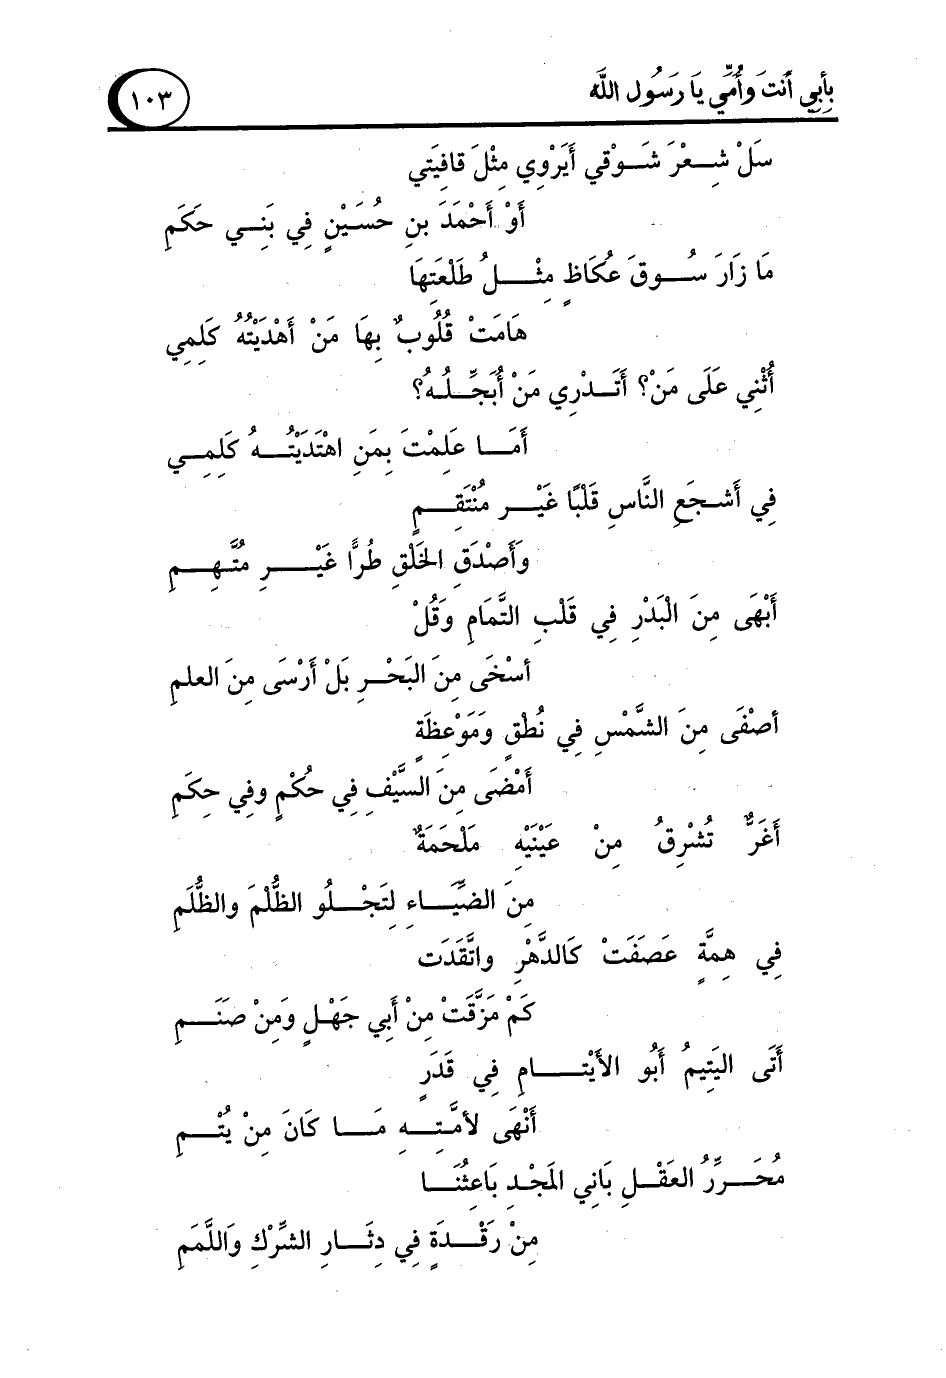 بِأَبِي أَنْتَ وَأُمِّي يَا رَسُول اللَّه
١٠٣
سَلْ شِعْرَ شَوْقي أَيَرْوِي مِثْلَ قافِيَتي
أَوْ أَحْمَدَ بنِ حُسَيْنٍ فِي بَنِي حَكَمِ
مَا زَارَ سُوقَ عُكَاظٍ مِثْلُ طَلْعَتِهَا
هَامَتْ قُلُوبٌ بِهَا مَنْ أَهْدَيْتُهُ كَلِمِي
أُثْنِي عَلَى مَنْ؟ أَتَدْرِي مَنْ أُبَجِّلُهُ؟
أَمَا عَلِمْتَ بِمَنِ اهْتَدَيْتُهُ كَلِمِي
فِي أَشجَعِ النَّاسِ قَلْبًا غَيْرِ مُنْتَقِمٍ
وَأَصْدَقِ الخَلْقِ طُرًّا غَيْرِ مُتَّهِمِ
أَبْهَى مِنَ الْبَدْرِ فِي قَلْبِ التَّمَامِ وَقُلْ
أسْخَى مِنَ البَحْرِ بَلْ أَرْسَى مِنَ العلمِ
أصْفَى مِنَ الشَّمْسِ فِي نُطْقٍ وَمَوْعِظَةٍ
أَمْضَى مِنَ السَّيْفِ فِي حُكْمٍ وفِي حِكَمِ
أَغَرٌّ تُشْرِقُ مِنْ عَيْنَيْهِ مَلْحَمَةٌ
مِنَ الضِّيَاءِ لِتَجْلُو الظُّلْمَ والظُّلَمِ
فِي هِمَّةٍ عَصَفَتْ كَالدَّهْرِ واتَّقَدَت
كَمْ مَزَّقَتْ مِنْ أَبِي جَهْلٍ وَمِنْ صَنَمِ
أَتَى اليَتِيمُ أَبُو الأَيْتَامِ فِي قَدَرٍ
أَنْهَى لأمَّتِهِ مَا كَانَ مِنْ يُتْمِ
مُحَرِّرُ العَقْلِ بَانِي المَجْدِ بَاعِثُنَا
مِنْ رَقْدَةٍ فِي دِثَارِ الشِّرْكِ وَاللَّمَمِ